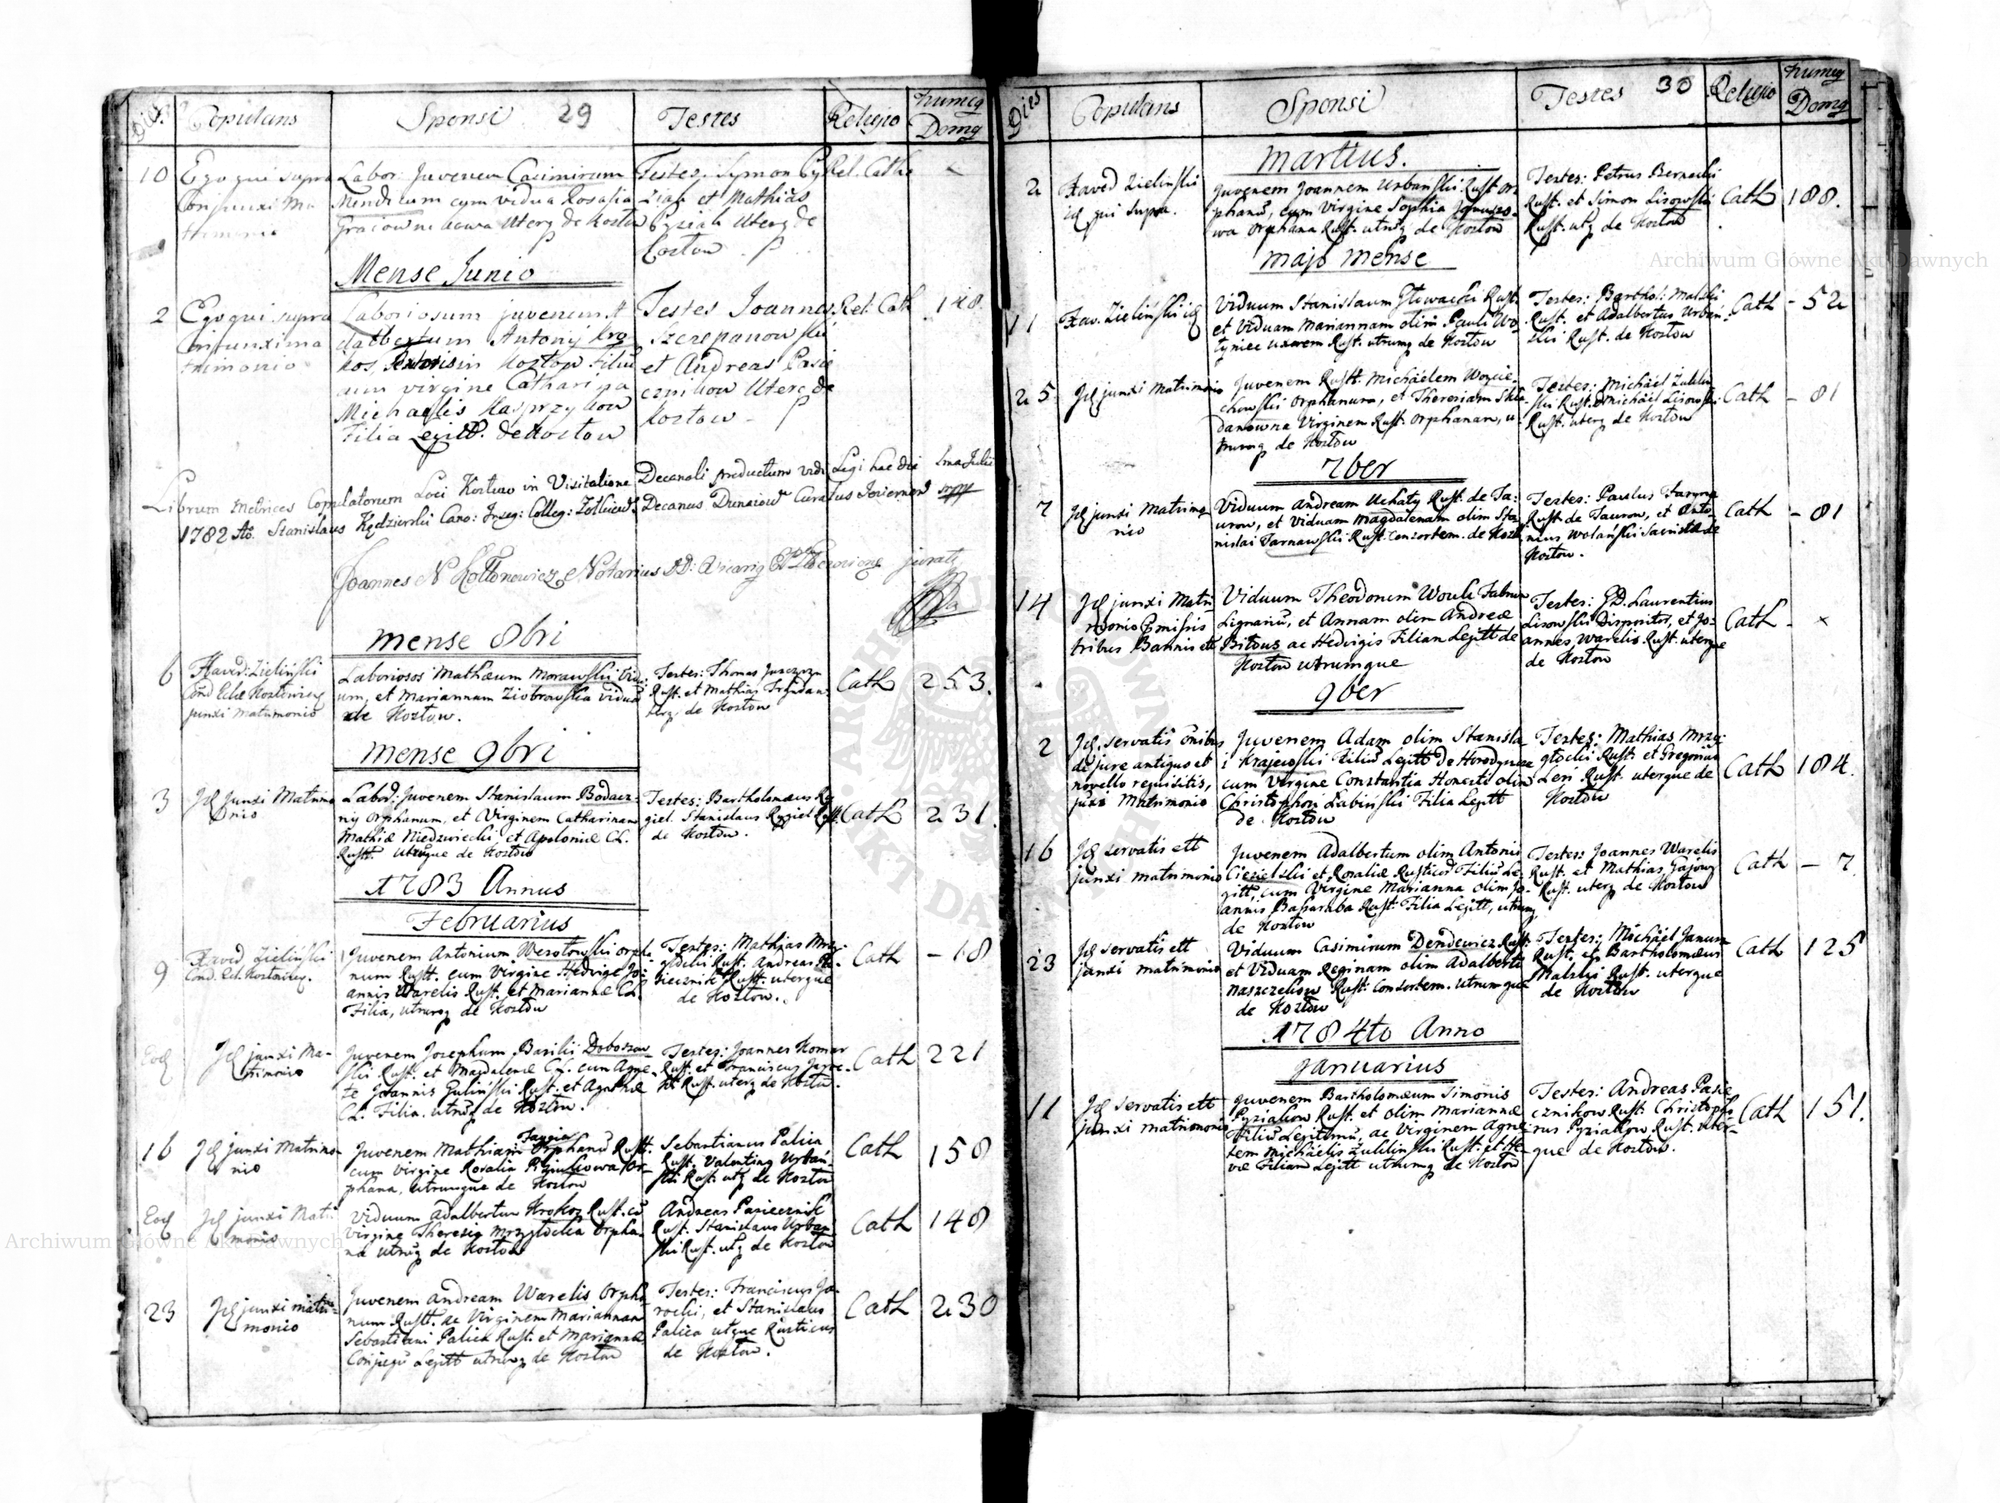 Dies
Copulans
Sponsi 29
Testes
Religio
Numerq Domq
10
Ego qui supra
Conjunxi Ma
trimonio
Labor: Juvenem Casimirum
cum vidua Rosalia
Uterq de Kostow
Testes: Symon
et Mathias
Uterq de
Rel. Cath
Mense Junio
2
Ego qui supra
Conjunxi ma
trimonio
Laboriosum juvenem A
dalbertum Antonij Kro
kos, Filiu
cum virgine Catharina
Michaelis Kasprzykow
Filia Legitt. de Koztow
Testes Joannes
Szczepanowski
et Andreas Pasie
cznikow Uterq de
Koztow
Rel. Cath
148
Librum Metrices Copulatorum Loci Koztow in Visitatione Decanali productum vidi Legi hac die 1ma Julii
1782 Ao. Stanislaus Kędzierski Cano: Decanus Dunaiow Curatus
Joannes N Notarius juratq
Mense 8bri
6
Xaved: Zieliński
junxi Matrimonio
Laboriosos Mathæum Morawski Vidu
um, et Mariannam Ziobrowska vidua
de Koztow.
Testes: Thomas
Rust. et Mathias
de Koztow
Cath
253.
Mense 9bri
3
Id junxi Matrimo
nio
Labor: Juvenem Stanislaum Bodacz-
nij Orphanum, et Virginem Catharinam
Mathiæ Niedzwiecki et Apoloniæ CL.
Rustt. utruqe de Koztow
Testes: Bartholomæus Rę
giel. Stanislaus Ręgiel Rustt.
de Koztow.
Cath
231.
1783 Annus
Februarius
9
Xaved Zieliński
Juvenem Antonium Wesołowski orpha
num Rustt. cum Virgine Hedvige Jo
annis Warelis Rust. et Mariannæ CL.
Filia, utrumq de Koztow
Testes: Mathias Mrzy
głocki Rust. Andreas Pa-
siecznik Rust. uterque
de Koztow.
Cath
– 18
Eod
Id junxi Ma-
trimonio
Juvenem Josephum Basilij Doboszow
ski Rust. et Magdalenæ CL. cum Agne-
te Joannis Guliński Rust. et Agathæ
CL. Filia. utruq de Koztow.
Testes: Joannes Komar
Rust. et Franciscus Jaroc-
ki Rust. uterq de Koztow.
Cath
221
16
Id junxi Matrimo-
nio
Juvenem Mathiam Orphanu Rustt.
cum Virgine Rosalia Or-
phana, utrumque de Koztow
Sebastianus Palica
Rust. Valentinq Urbań-
ski Rust. utq de Koztow
Cath
158
Eod
Id junxi Matri
monio
Viduum Adalbertum Krokos Rust. cu
Virgine Theresia Mrzygłocka Orpha-
na utruq de Koztow
Andreas Pasiecznik
Rust. Stanislaus Urban
ski Rust. utq de Koztow
Cath
148
23
Id junxi matri-
monio
Juvenem Andream Warelis Orpha
num Rustt. ac Virginem Mariannam
Sebastiani Palica Rust. et Mariannæ
Conjugu Legitt utrumq de Koztow
Testes: Franciscus Ja
rocki, et Stanislaus
Palica utque Rusticus
de Koztow.
Cath
230
Dies
Copulans
Sponsi
Testes 30
Religio
Numerq Domq
Martius.
2
Xaved Zieliński
id qui supra.
Juvenem Joannem Urbański Rust. or
phanu, cum Virgine Sophia
wa Orphana Rust. utruq de Koztow
Testes: Petrus Bernacki
Rust. et Simon Lisowski
Rust. utq de Koztow
Cath
188.
Majo Mense
11
Xav. Zieliński id
Viduum Stanislaum Głowacki Rust.
et Viduam Mariannam olim Pauli Wo
łyniec uxorem Rust. utrumq de Koztow
Testes: Barthol: Malski
Rust. et Adalbertus Urbań
ski Rust. de Koztow
Cath
– 52
25
Id junxi Matrimonio
Juvenem Rustt. Michaelem Woycie
chowski Orphanum, et Theresiam Skła
danowna Virginem Rust. Orphanam, u-
trumq de Koztow
Testes: Michael
ski Rust. et Michael Lisowski
Rust. uterq de Koztow
Cath
– 81
7ber
7
Id junxi Matrimo
nio
Viduum Andream Uchaty Rust. de Ta:
urow, et Viduam Magdalenam olim Sta
nislai Tarnawski Rust. Consortem. de Kozt
Testes: Paulus
Rust de Taurow, et Anto-
nius Wolański Sacristia de
Koztow.
Cath
– 81
14
Id junxi Matri
monio Omissis
tribus Bannis ett
Viduum Theodorum Wouk Fabrum
Lignariu, et Annam olim Andreæ
Bitous ac Hedvigis Filiam Legitt de
Koztow utrumque
Testes: GD. Laurentius
Lisowski Dispositor, et Jo-
annes Warelis Rust. uterque
de Koztow
Cath
×
9ber
2
Id. servatis omibus
de jure antiquo et
novello requisitis,
junxi Matrimonio
Juvenem Adam olim Stanisla
i Krajewski Filiu Legitt de Horodyszcze
cum Virgine Constantia Honesti olim
Christophori Zabinski Filia Legitt
de Koztow
Testes: Mathias Mrzy
głocki Rust. et Gregorius
Leri Rust. uterque de
Koztow
Cath
184.
16
Id servatis ett
junxi matrimonio
Juvenem Adalbertum olim Antonii
Ciezielski et Rosaliæ Rusticor Filiu Le
gitt, cum Virgine Marianna olim Jo-
annis Bassaraba Rust. Filia Legitt, utrumq
de Koztow
Testes: Joannes Warelis
Rust. et Mathias
Rust. uterq de Koztow
Cath
– 7
23
Id servatis ett
junxi matrimonio
Viduum Casimirum Dendewicz Rust.
et Viduam Reginam olim Adalberti
Naszczekow Rust: Consortem. utrumque
de Koztow
Testes: Michael Janusz
Rust. et Bartholomæus
Malski Rust. uterque
de Koztow
Cath
125
1784to Anno
Januarius
11
Id servatis ett
junxi matrimonio
Juvenem Bartholomæum Simonis
Pyziakow Rust. et olim Mariannæ
Filiu Legitimu, ac Virginem Agne
tem Michaelis Żukliński Rust. et He
væ Filiam Legitt utrumq de Koztow
Testes: Andreas Pasie
cznikow Rust. Christopho-
rus Pyziakow Rust. uter-
que de Koztow.
Cath
151.
Archiwum Główne Akt Dawnych
Archiwum Główne Akt Dawnych